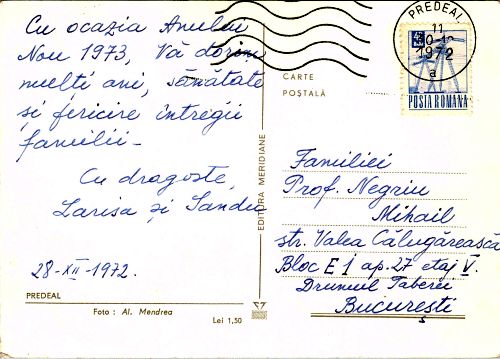 Cu ocazia Anului
Nou 1973, Vă dorim
mulți ani, sănătate
și fericire întregii
familii -
Cu dragoste,
Larisa și Sandu
28-XII-1972.
PREDEAL
Foto : Al. Mendrea
Lei 1,50
EDITURA MERIDIANE
CARTE
POȘTALĂ
PREDEAL
11
1972
a
POSTA ROMANA
Familiei
Prof. Negriu
Mihail
str. Valea Călugărească
Bloc E 1 ap. 27 etaj V.
Drumul Taberei
București